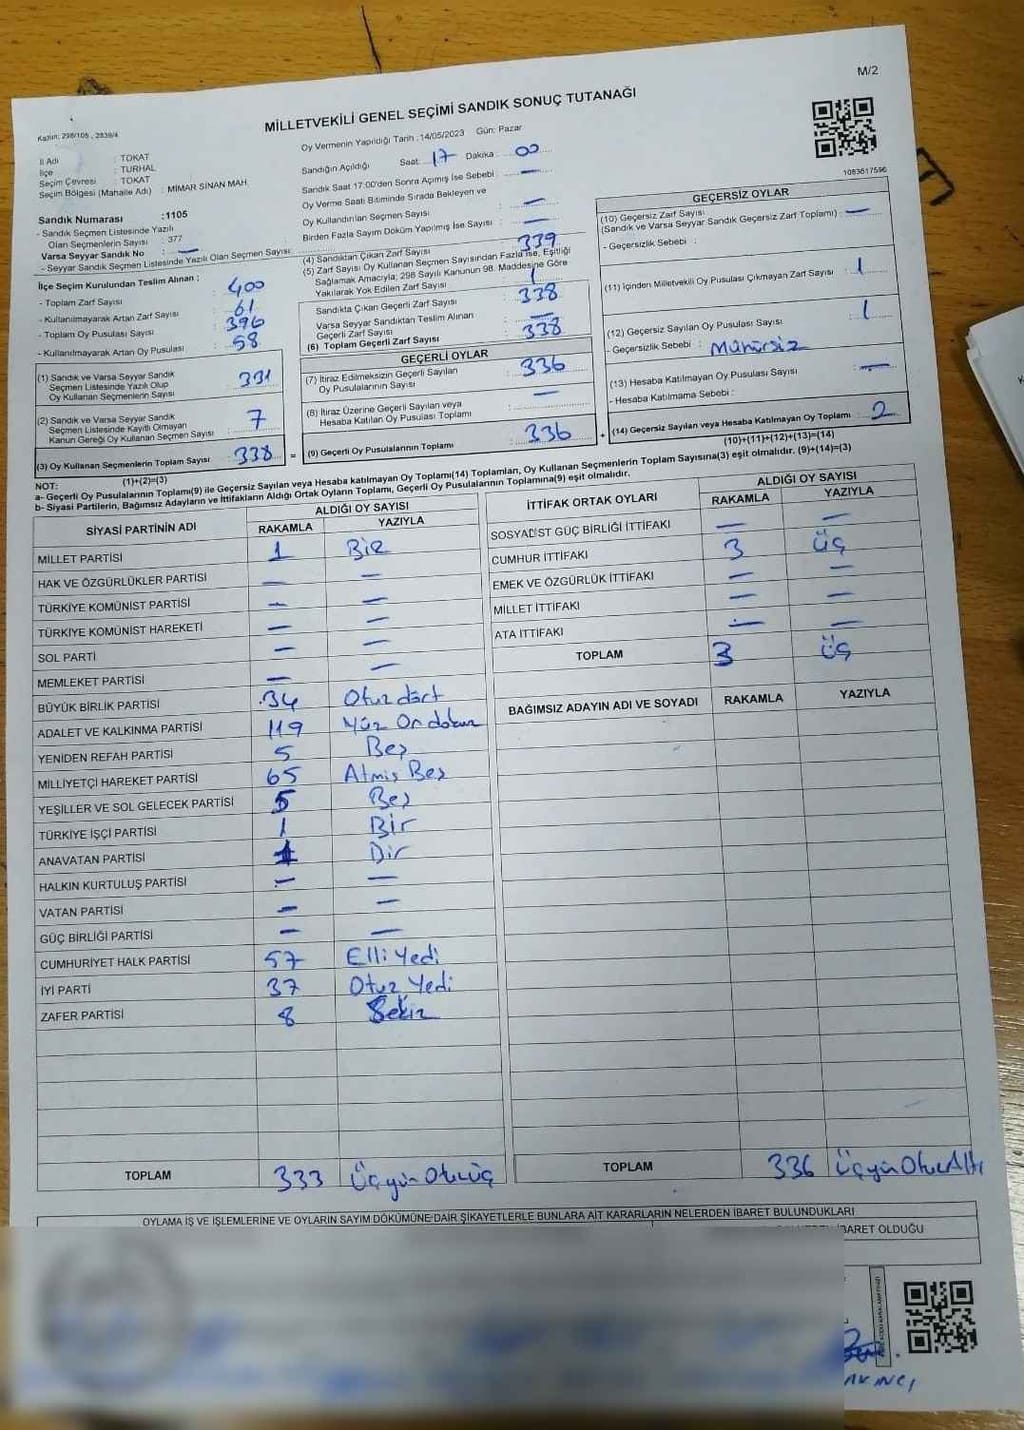 M/2
MİLLETVEKİLİ GENEL SEÇİMİ SANDIK SONUÇ TUTANAĞI
Kanun: 298/105 , 2839/4
Oy Vermenin Yapıldığı Tarih : 14/05/2023 Gün: Pazar
İl Adı : TOKAT
İlçe : TURHAL
Seçim Çevresi : TOKAT
Seçim Bölgesi (Mahalle Adı) : MİMAR SİNAN MAH.
Sandığın Açıldığı Saat: 17 Dakika : 00
Sandık Saat 17:00'den Sonra Açımış İse Sebebi : —
Oy Verme Saati Bitiminde Sırada Bekleyen ve
Oy Kullandırılan Seçmen Sayısı : —
Birden Fazla Sayım Döküm Yapılmış İse Sayısı : —
1083617596
Sandık Numarası :1105
- Sandık Seçmen Listesinde Yazılı
Olan Seçmenlerin Sayısı : 377
Varsa Seyyar Sandık No : —
- Seyyar Sandık Seçmen Listesinde Yazılı Olan Seçmen Sayısı:
İlçe Seçim Kurulundan Teslim Alınan :
- Toplam Zarf Sayısı : 400
- Kullanılmayarak Artan Zarf Sayısı : 61
- Toplam Oy Pusulası Sayısı : 396
- Kullanılmayarak Artan Oy Pusulası : 58
(1) Sandık ve Varsa Seyyar Sandık
Seçmen Listesinde Yazılı Olup
Oy Kullanan Seçmenlerin Sayısı : 331
(2) Sandık ve Varsa Seyyar Sandık
Seçmen Listesinde Kayıtlı Olmayan
Kanun Gereği Oy Kullanan Seçmen Sayısı : 7
(3) Oy Kullanan Seçmenlerin Toplam Sayısı : 338
(1)+(2)=(3)
(4) Sandıktan Çıkan Zarf Sayısı : 339
(5) Zarf Sayısı Oy Kullanan Seçmen Sayısından Fazla ise, Eşitliği
Sağlamak Amacıyla, 298 Sayılı Kanunun 98. Maddesine Göre
Yakılarak Yok Edilen Zarf Sayısı : 1
Sandıkta Çıkan Geçerli Zarf Sayısı : 338
Varsa Seyyar Sandıktan Teslim Alınan
Geçerli Zarf Sayısı : —
(6) Toplam Geçerli Zarf Sayısı : 338
GEÇERLİ OYLAR
(7) İtiraz Edilmeksizin Geçerli Sayılan
Oy Pusulalarının Sayısı : 336
(8) İtiraz Üzerine Geçerli Sayılan veya
Hesaba Katılan Oy Pusulası Toplamı : —
= (9) Geçerli Oy Pusulalarının Toplamı : 336
GEÇERSİZ OYLAR
(10) Geçersiz Zarf Sayısı
(Sandık ve Varsa Seyyar Sandık Geçersiz Zarf Toplamı) : —
- Geçersizlik Sebebi :
(11) İçinden Milletvekili Oy Pusulası Çıkmayan Zarf Sayısı : 1
(12) Geçersiz Sayılan Oy Pusulası Sayısı : 1
- Geçersizlik Sebebi : Mühürsiz
(13) Hesaba Katılmayan Oy Pusulası Sayısı : —
- Hesaba Katılmama Sebebi :
+ (14) Geçersiz Sayılan veya Hesaba Katılmayan Oy Toplamı : 2
(10)+(11)+(12)+(13)=(14)
NOT:
a- Geçerli Oy Pusulalarının Toplamı(9) ile Geçersiz Sayılan veya Hesaba katılmayan Oy Toplamı(14) Toplamları, Oy Kullanan Seçmenlerin Toplam Sayısına(3) eşit olmalıdır. (9)+(14)=(3)
b- Siyasi Partilerin, Bağımsız Adayların ve İttifakların Aldığı Ortak Oyların Toplamı, Geçerli Oy Pusulalarının Toplamına(9) eşit olmalıdır.
SİYASİ PARTİNİN ADI ALDIĞI OY SAYISI
RAKAMLA YAZIYLA
MİLLET PARTİSİ 1 Bir
HAK VE ÖZGÜRLÜKLER PARTİSİ — —
TÜRKİYE KOMÜNİST PARTİSİ — —
TÜRKİYE KOMÜNİST HAREKETİ — —
SOL PARTİ — —
MEMLEKET PARTİSİ — —
BÜYÜK BİRLİK PARTİSİ 34 Otuz dört
ADALET VE KALKINMA PARTİSİ 119 Yüz On dokuz
YENİDEN REFAH PARTİSİ 5 Beş
MİLLİYETÇİ HAREKET PARTİSİ 65 Atmış Beş
YEŞİLLER VE SOL GELECEK PARTİSİ 5 Beş
TÜRKİYE İŞÇİ PARTİSİ 1 Bir
ANAVATAN PARTİSİ 1 Bir
HALKIN KURTULUŞ PARTİSİ — —
VATAN PARTİSİ — —
GÜÇ BİRLİĞİ PARTİSİ — —
CUMHURİYET HALK PARTİSİ 57 Elli Yedi
İYİ PARTİ 37 Otuz Yedi
ZAFER PARTİSİ 8 Sekiz
TOPLAM 333 Üçyüz Otuzüç
İTTİFAK ORTAK OYLARI ALDIĞI OY SAYISI
RAKAMLA YAZIYLA
SOSYALİST GÜÇ BİRLİĞİ İTTİFAKI — —
CUMHUR İTTİFAKI 3 üç
EMEK VE ÖZGÜRLÜK İTTİFAKI — —
MİLLET İTTİFAKI — —
ATA İTTİFAKI — —
TOPLAM 3 üç
BAĞIMSIZ ADAYIN ADI VE SOYADI RAKAMLA YAZIYLA
TOPLAM 336 Üçyüz Otuz Altı
OYLAMA İŞ VE İŞLEMLERİNE VE OYLARIN SAYIM DÖKÜMÜNE DAİR ŞİKAYETLERLE BUNLARA AİT KARARLARIN NELERDEN İBARET BULUNDUKLARI
İBARET OLDUĞU